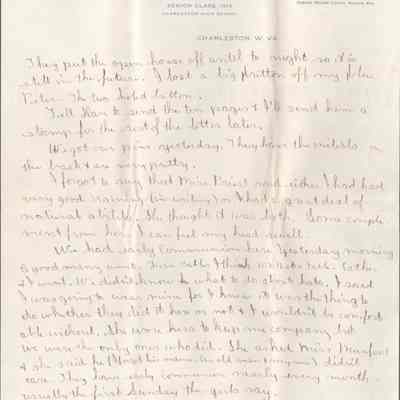 SENIOR CLASS, 1915
CHARLESTON HIGH SCHOOL
CHARLESTON, W. VA.
They put the open house off until to night so it is
still in the future. I lost a big button off my blue
Peter. The two holed button.
Tell Hans to send the ten pages & I'll send him a
stamp for the rest of the letter later.
We got our pins yesterday. They have the initials on
the back & are very pretty.
I forgot to say that Miss Priest said either I had had
very good training (in writing) or I had a great deal of
natural ability. She thought it was both. Some compli
ment from her. I can feel my head swell.
We had early Communion here yesterday morning
& good many went.
& I went. We didn't know what to do about hats. I said
I was going to wear mine for I knew it was the thing to
do whether they did it here or not & I wouldn't be comfort
able without. She wore hers to keep me company but
we were the only ones who did. She asked Miss
& she said he (I forget his name. An old man &) didn't
care. They have early communion nearly every month
usually the first Sunday the girls say.